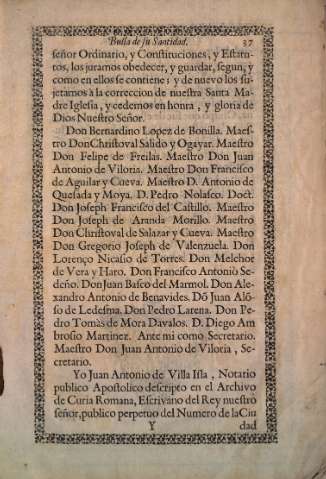 Bulla de su Santidad. 37
señor Ordinario, y Constituciones, y Estatu-
tos, los juramos obedecer, y guardar, segun, y
como en ellos se contiene; y de nuevo los su-
jetamos à la correccion de nuestra Santa Ma-
dre Iglesia, y cedemos en honra, y gloria de
Dios Nuestro Señor.
Don Bernardino Lopez de Bonilla. Maes-
tro Don Christoval Salido y Ogayar. Maestro
Don Felipe de Freilas. Maestro Don Juan
Antonio de Viloria. Maestro Don Francisco
de Aguilar y Cueva. Maestro D. Antonio de
Quesada y Moya. D. Pedro Nolasco. Doct.
Don Joseph Francisco del Castillo. Maestro
Don Joseph de Aranda Morillo. Maestro
Don Christoval de Salazar y Cueva. Maestro
Don Gregorio Joseph de Valenzuela. Don
Lorenço Nicasio de Torres. Don Melchor
de Vera y Haro. Don Francisco Antonio Se-
deño. Don Juan Basco del Marmol. Don Ale-
xandro Antonio de Benavides. Dõ Juan Alõ-
so de Ledesma. Don Pedro Larena. Don Pe-
dro Tomàs de Mora Davalos. D. Diego Am
brosio Martinez. Ante mi como Secretario.
Maestro Don Juan Antonio de Viloria, Se-
cretario.
Yo Juan Antonio de Villa Isla, Notario
publico Apostolico descripto en el Archivo
de Curia Romana, Escrivano del Rey nuestro
señor, publico perpetuo del Numero de la Ciu
Y dad